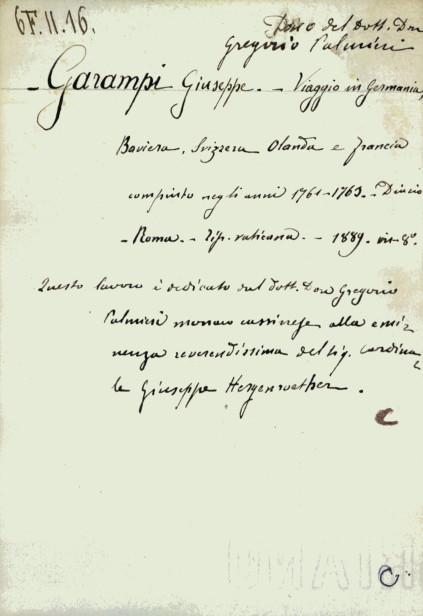 6F.II.16.
Dono del dott. Don
Gregorio Palmieri
- Garampi Giuseppe. - Viaggio in Germania,
Baviera, Svizzera Olanda e Francia
compiuto negli anni 1761-1763. - Diario
- Roma. - Tip. vaticana. - 1889. in-8°.
Questo lavoro è dedicato dal dott. Don Gregorio
Palmieri monaco cassinese alla emi-
nenza reverendissima del sig. cardina-
le Giuseppe Hergenroether.
C
C.